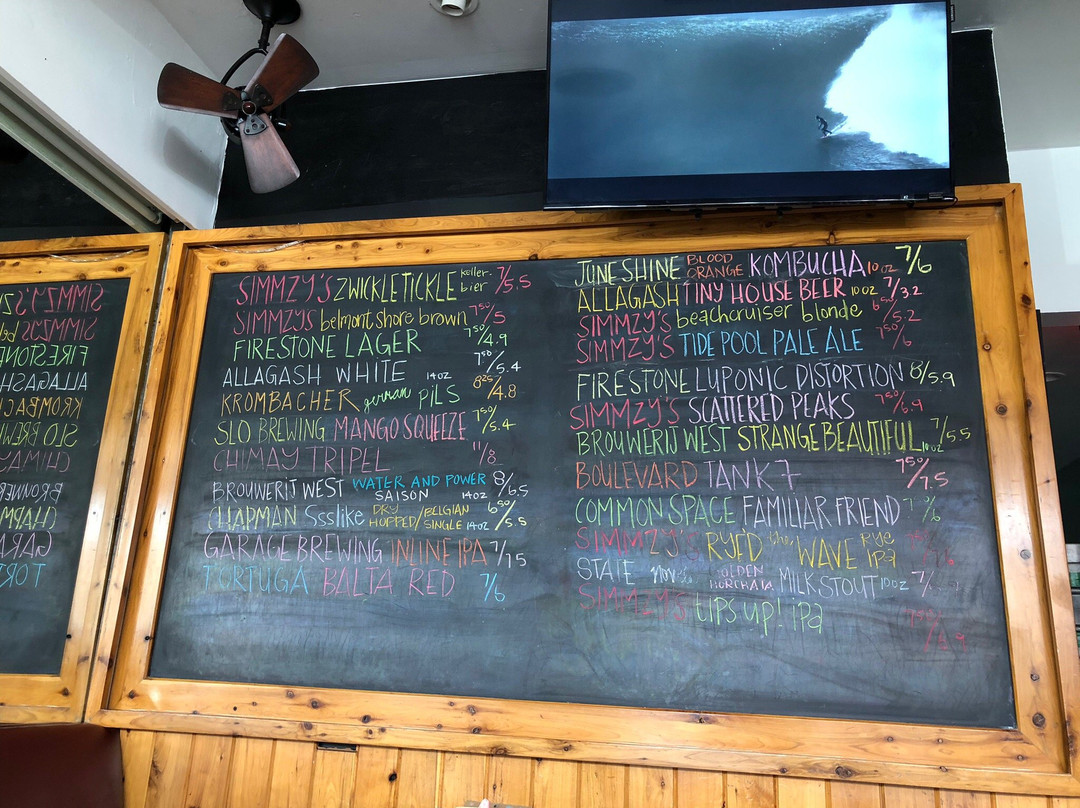 SIMMZY'S ZWICKLETICKLE keller-bier 7/5.5
SIMMZYS belmont shore brown 7⁵⁰/5
FIRESTONE LAGER 7⁵⁰/4.9
ALLAGASH WHITE 14OZ 7⁵⁰/5.4
KROMBACHER german PILS 8²⁵/4.8
SLO BREWING MANGO SQUEEZE 7⁵⁰/5.4
CHIMAY TRIPEL 11/8
BROUWERIJ WEST WATER AND POWER SAISON 14OZ 8/6.5
CHAPMAN Ssslike DRY HOPPED/BELGIAN SINGLE 14OZ 6⁵⁰/5.5
GARAGE BREWING INLINE IPA 7/7.5
TORTUGA BALTA RED 7/6
JUNESHINE BLOOD ORANGE KOMBUCHA 10 OZ 7/6
ALLAGASH TINY HOUSE BEER 10 OZ 7/3.2
SIMMZY'S beachcruiser blonde 6⁵⁰/5.2
SIMMZY'S TIDE POOL PALE ALE 7⁵⁰/6
FIRESTONE LUPONIC DISTORTION 8/5.9
SIMMZY'S SCATTERED PEAKS 7⁵⁰/6.9
BROUWERIJ WEST STRANGE BEAUTIFUL 10OZ 7/5.5
BOULEVARD TANK 7 7⁵⁰/7.5
COMMON SPACE FAMILIAR FRIEND
SIMMZY'S RYE'D the WAVE RYE IPA
STATE HORCHATA MILK STOUT 10OZ 7/
SIMMZY'S LIPS UP! IPA